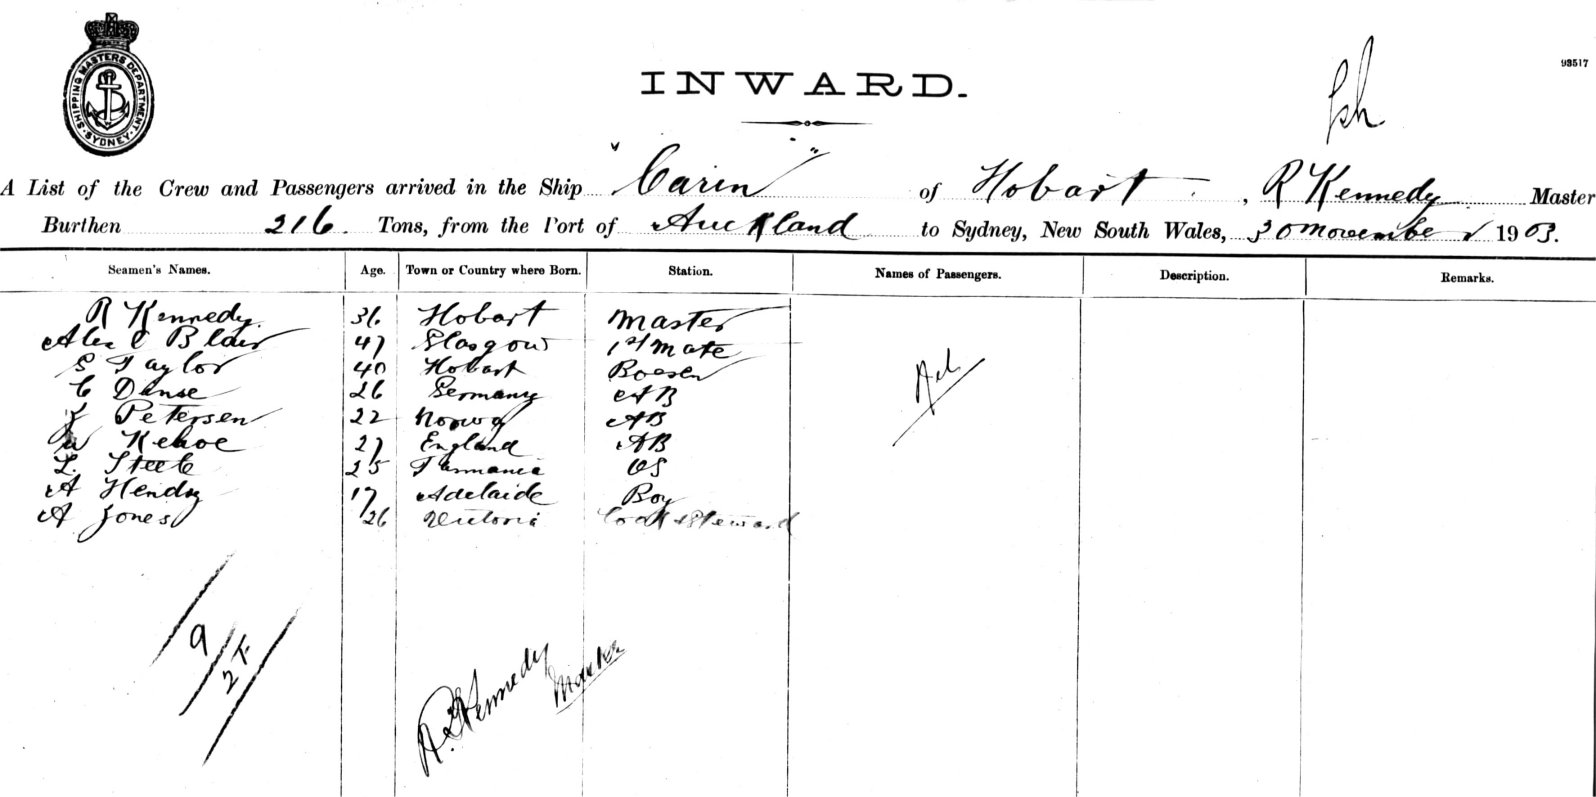 SHIPPING MASTERS DEPARTMENT
SYDNEY
93517
INWARD.
A List of the Crew and Passengers arrived in the Ship "Carin" of Hobart, R Kennedy Master
Burthen 216 Tons, from the Port of Auckland to Sydney, New South Wales, 30 November 1903.
Seamen's Names. Age. Town or Country where Born. Station. Names of Passengers. Description. Remarks.
R Kennedy 36 Hobart Master
Alex C Blair 47 Glasgow 1st Mate
S Taylor 40 Hobart Bosen
C Danse 26 Germany AB
Petersen 22 Norwy AB
W Kehoe 27 England AB
L. Steele 25 Tasmania OS
A Hendry 17 Adelaide Boy
A Jones 26 Victoria Cook & Steward
9
2F
R. Kennedy
Master